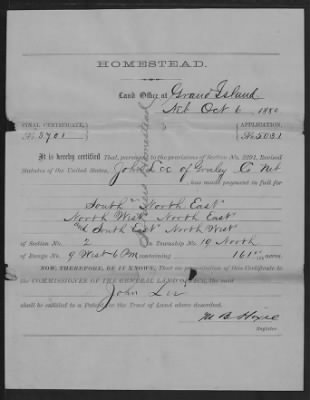 HOMESTEAD.
Land Office at Grand Island
Neb Oct 6 1880
FINAL CERTIFICATE, APPLICATION,
No. 3701 No. 5031
It is hereby certified That, pursuant to the provisions of Section No. 2291, Revised
Statutes of the United States, John Lee of Co Neb
has made payment in full for
South North East
North West North East
and South East North West
of Section No. 2 in Township No. 19 North
of Range No. 9 West 6 PM containing 161 acres.
NOW, THEREFORE, BE IT KNOWN, That on presentation of this Certificate to
the COMMISSIONER OF THE GENERAL LAND OFFICE, the said
John Lee
shall be entitled to a Patent for the Tract of Land above described.
M B Hoxie
Register.
Homestead